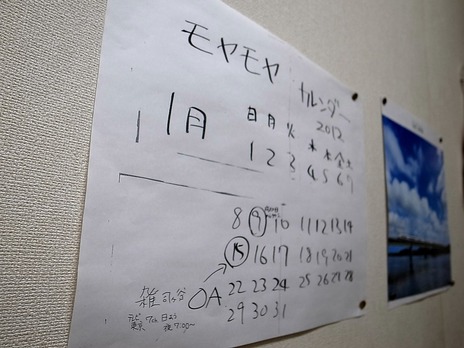 モヤモヤ カレンダー
2012
11月
日 月 火 水 木 金 土
1 2 3 4 5 6 7
8 9 10 11 12 13 14
15 16 17 18 19 20 21
22 23 24 25 26 27 28
29 30 31
OA
雑司ヶ谷
テレビ東京 7ch 日よう
夜7:00〜